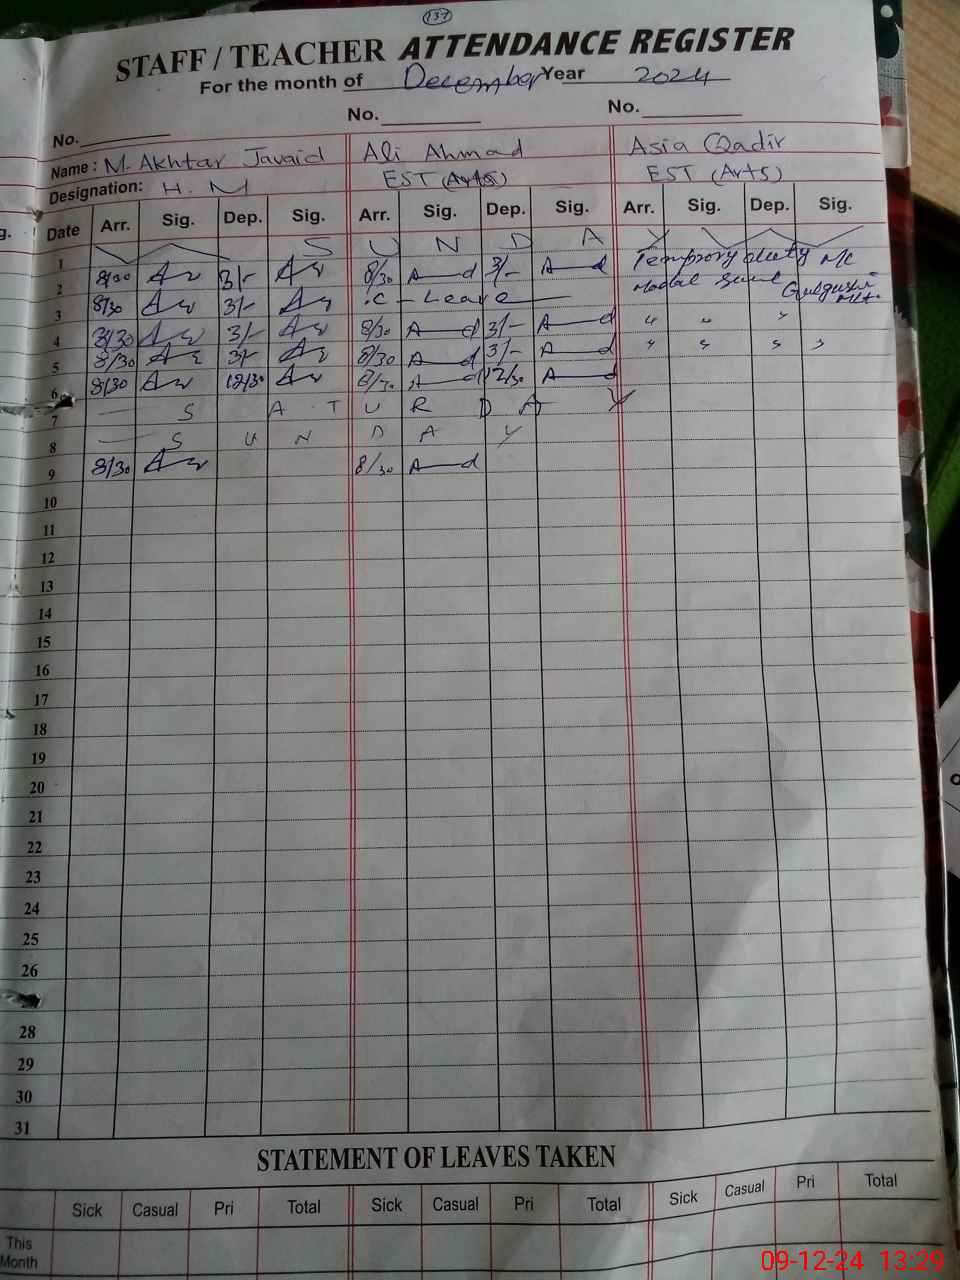 137
STAFF / TEACHER ATTENDANCE REGISTER
For the month of December Year 2024
No. No. No.
Name : M. Akhtar Javaid Ali Ahmad Asia Qadir
Designation: H. M EST (Arts) EST (Arts)
g. Date Arr. Sig. Dep. Sig. Arr. Sig. Dep. Sig. Arr. Sig. Dep. Sig.
1 S U N D A Y
2 8/30 3/- 8/30 A d 3/- A d Temprory duty
3 8/30 3/- C - Leave
4 8/30 3/- 8/30 A d 3/- A d " " "
5 8/30 3/- 8/30 A d 3/- A d " " " "
6 8/30 12/30 8/30 A d 12/30 A d
7 S A T U R D A Y
8 S U N D A Y
9 8/30 8/30 A d
10
11
12
13
14
15
16
17
18
19
20
21
22
23
24
25
26
28
29
30
31
STATEMENT OF LEAVES TAKEN
Sick Casual Pri Total Sick Casual Pri Total Sick Casual Pri Total
This
Month
09-12-24 13:29